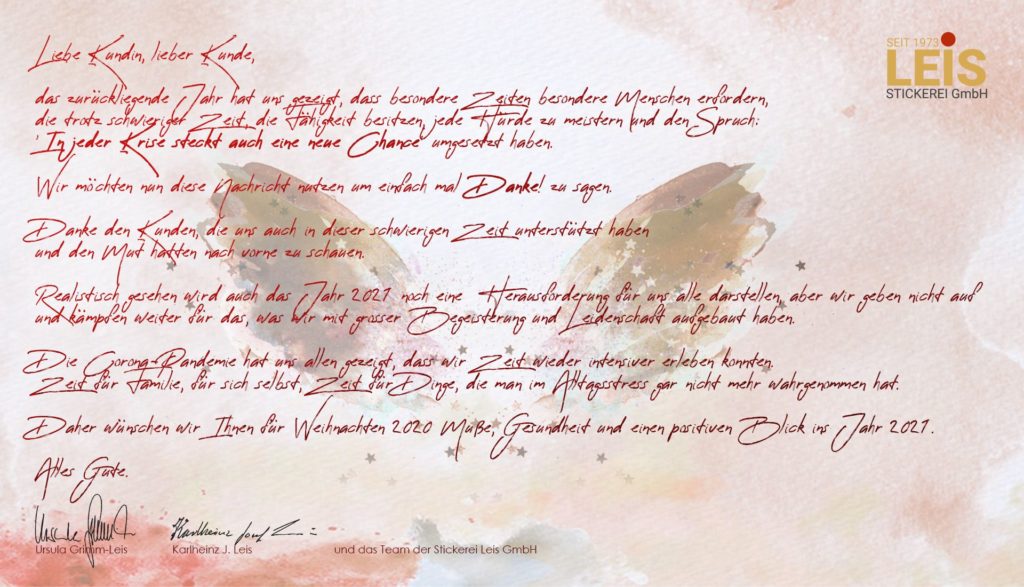 SEIT 1973
LEIS
STICKEREI GmbH
Liebe Kundin, lieber Kunde,
das zurückliegende Jahr hat uns gezeigt, dass besondere Zeiten besondere Menschen erfordern,
die trotz schwieriger Zeit, die Fähigkeit besitzen, jede Hürde zu meistern und den Spruch:
'In jeder Krise steckt auch eine neue Chance' umgesetzt haben.
Wir möchten nun diese Nachricht nutzen um einfach mal Danke! zu sagen.
Danke den Kunden, die uns auch in dieser schwierigen Zeit unterstützt haben
und den Mut hatten nach vorne zu schauen.
Realistisch gesehen wird auch das Jahr 2021 noch eine Herausforderung für uns alle darstellen, aber wir geben nicht auf
und kämpfen weiter für das, was wir mit grosser Begeisterung und Leidenschaft aufgebaut haben.
Die Corona-Pandemie hat uns allen gezeigt, dass wir Zeit wieder intensiver erleben konnten.
Zeit für Familie, für sich selbst, Zeit für Dinge, die man im Alltagsstress gar nicht mehr wahrgenommen hat.
Daher wünschen wir Ihnen für Weihnachten 2020 Muße, Gesundheit und einen positiven Blick ins Jahr 2021.
Alles Gute.
Ursula Grimm-Leis Karlheinz J. Leis und das Team der Stickerei Leis GmbH